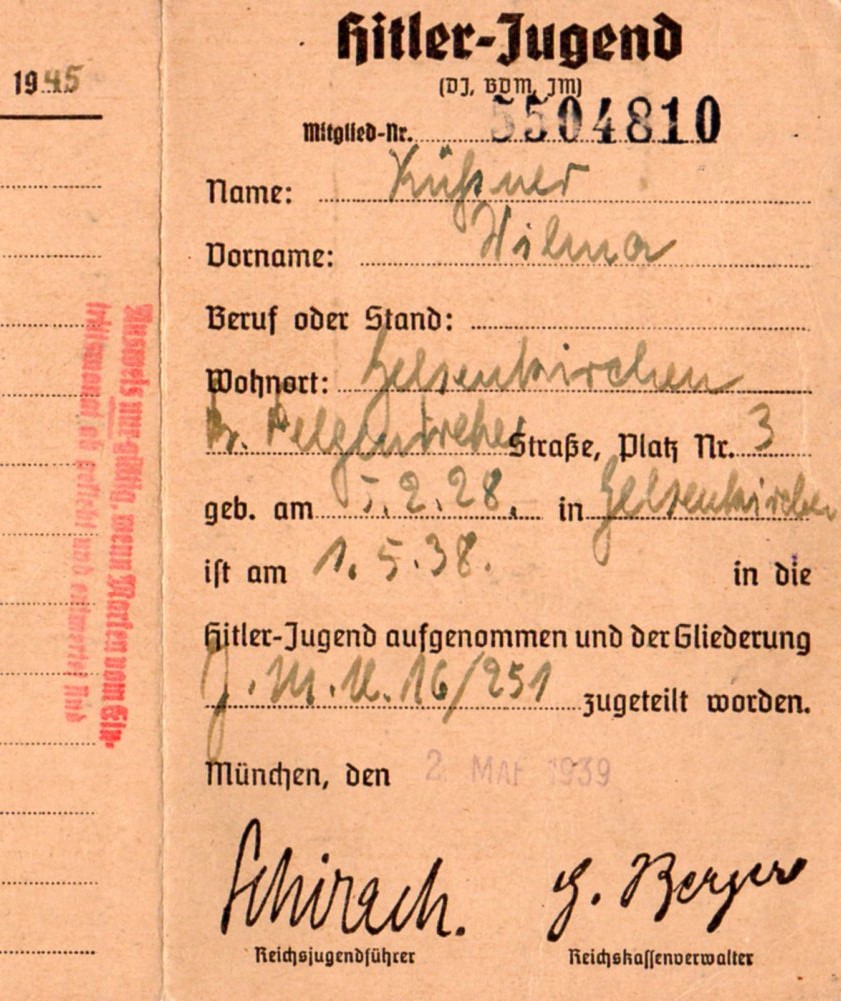 1945
Hitler-Jugend
(DJ, BDM, JM)
Mitglied-Nr. 5504810
Name: Küßner
Vorname: Wilma
Beruf oder Stand:
Wohnort: Gelsenkirchen
Straße, Platz Nr. 3
geb. am 5.2.28. in Gelsenkirchen
ist am 1.5.38. in die
Hitler-Jugend aufgenommen und der Gliederung
J.M.U. 16/251 zugeteilt worden.
München, den 2. MAI 1939
Schirach. G. Berger
Reichsjugendführer Reichskassenverwalter
Ausweis nur gültig, wenn Marken vom Ein-
trittsmonat ab geklebt und entwertet sind